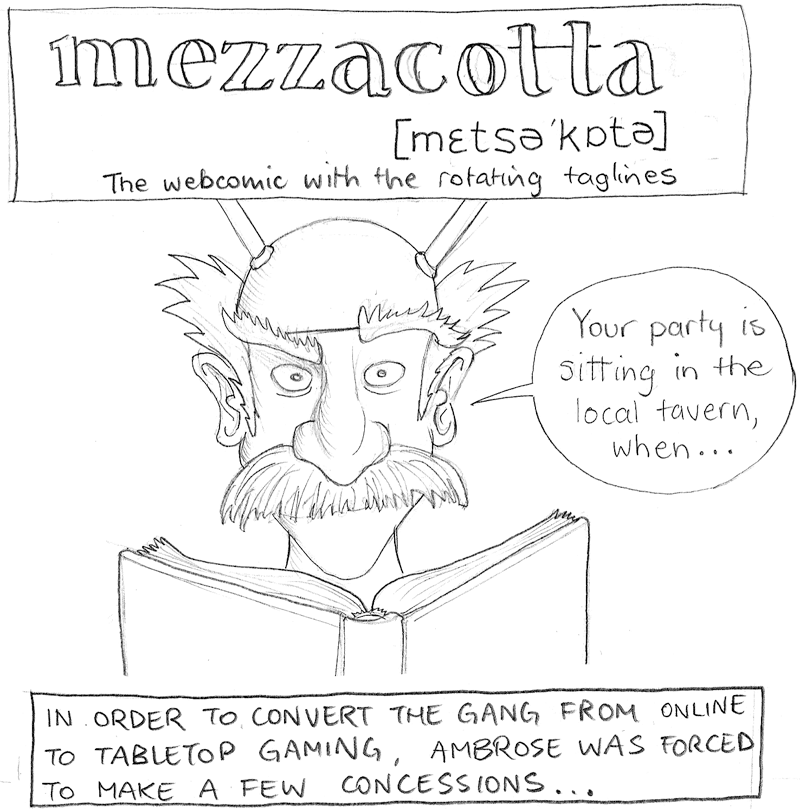 mezzacotta
[mɛtsə'kɒtə]
The webcomic with the rotating taglines
Your party is
sitting in the
local tavern,
when...
IN ORDER TO CONVERT THE GANG FROM ONLINE
TO TABLETOP GAMING, AMBROSE WAS FORCED
TO MAKE A FEW CONCESSIONS...